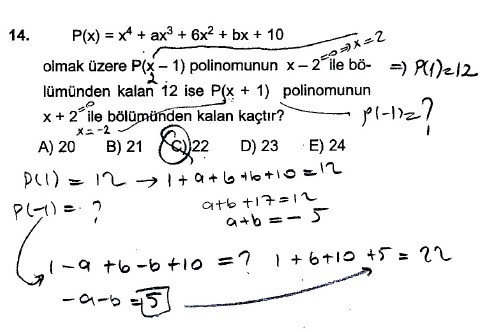 14. P(x) = x⁴ + ax³ + 6x² + bx + 10
=0 ⇒ x=2
olmak üzere P(x – 1) polinomunun x – 2 ile bö-
2
⇒ P(1)=12
lümünden kalan 12 ise P(x + 1) polinomunun
=0
x + 2 ile bölümünden kalan kaçtır?
P(-1)=?
x=-2
A) 20 B) 21 C) 22 D) 23 E) 24
P(1) = 12 → 1+a+6+b+10=12
P(-1)=?
a+b+17=12
a+b=-5
1-a+6-b+10=? 1+6+10+5=22
-a-b=5